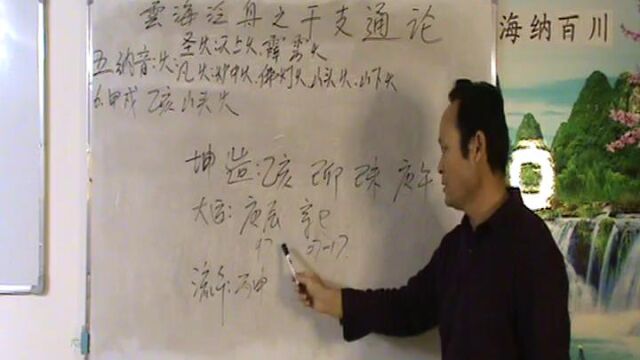 雲海泛舟之干支通论
圣火:天上火、霹雳火
五.纳音:火:凡火:炉中火、佛灯火、山头火、山下火
6.甲戌 乙亥 山头火
坤造:乙亥 己卯 己未 庚午
大运:庚辰 辛巳
97 07-17
流年:丙申
海纳百川